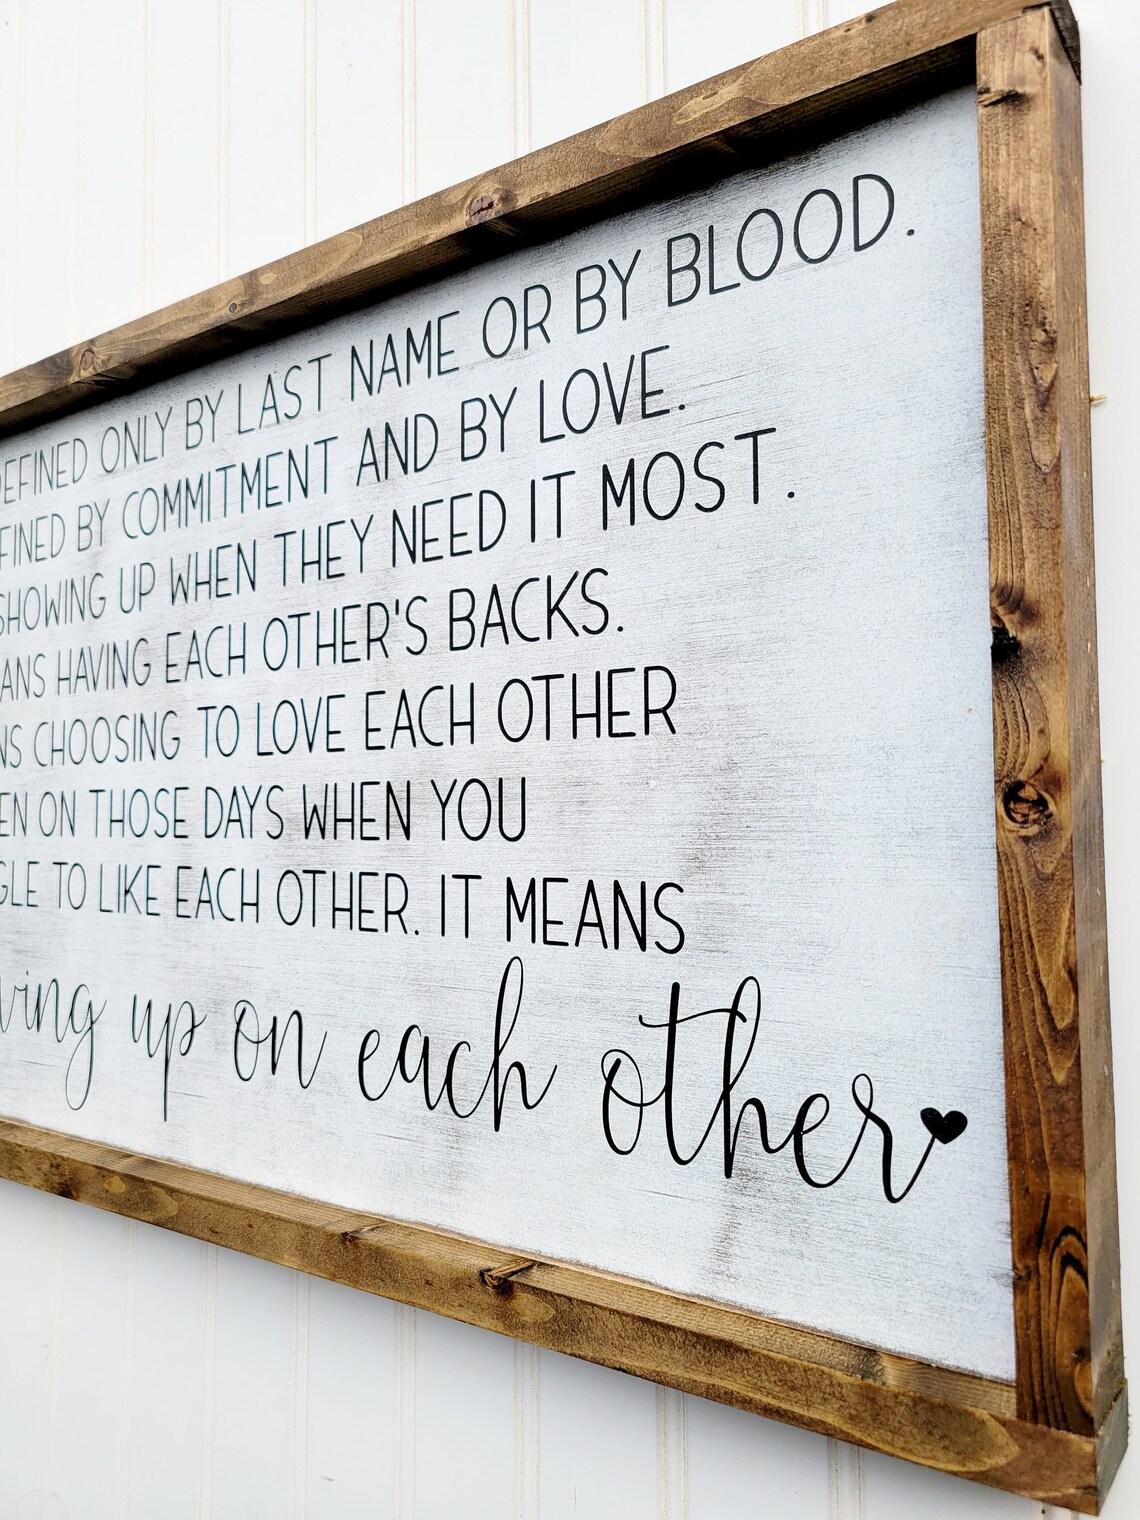 ONLY BY LAST NAME OR BY BLOOD.
BY COMMITMENT AND BY LOVE.
SHOWING UP WHEN THEY NEED IT MOST.
HAVING EACH OTHER'S BACKS.
CHOOSING TO LOVE EACH OTHER
ON THOSE DAYS WHEN YOU
TO LIKE EACH OTHER. IT MEANS
up on each other